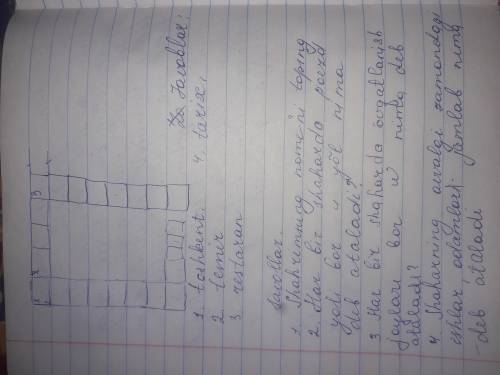 Javoblar:
1. toshkent. 4. tarix.
2 temir
3 restaran
Savollar.
1. Shahrimning nomini toping
2. Har bir shaharda poezd
yoli bor u yol nima
deb ataladi?
3 Har bir shaharda ovqatlanish
joylari bor u nima deb
ataladi?
4 Shaharning avvalgi zamondagi
ishlar, odamlari jamlab nima
deb ataladi